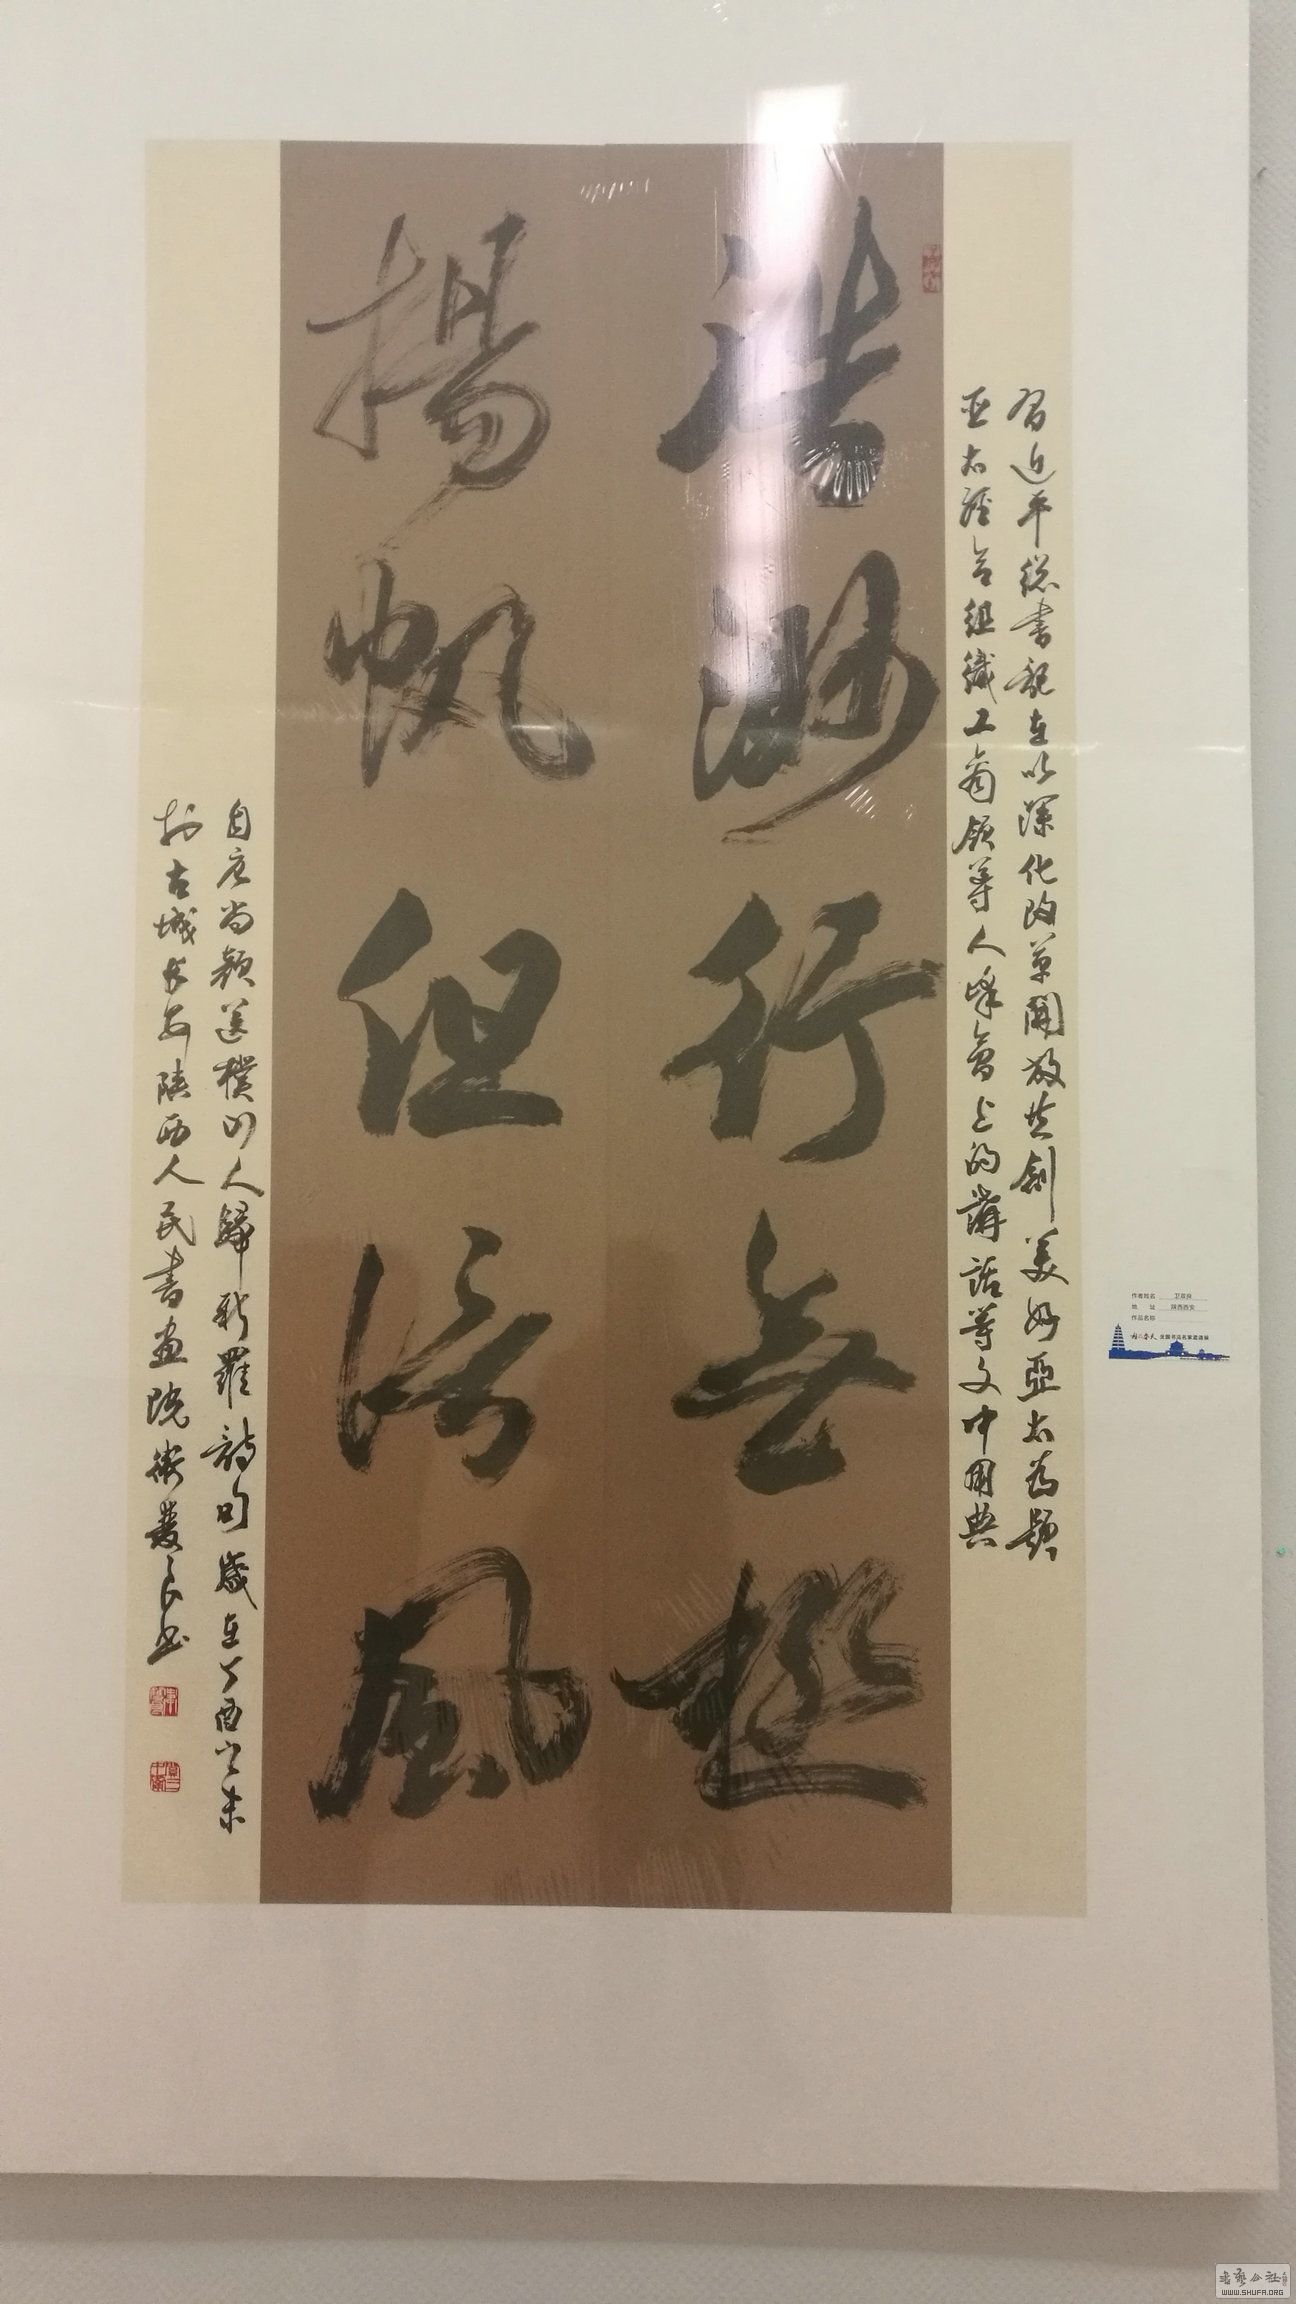 浩渺行無極
揚帆但信風
習近平總書記在以深化改革開放共創美好亞太為題
亚太經合組織工商領導人峰會上的講話等文中用典
自唐尚顏送樸山人歸新羅詩句歲在丁酉之末
於古城長安陝西人民書畫院衛雙良书
作者姓名 卫双良
地 址 陕西西安
作品名称
全国书法名家邀请展
书艺公社
WWW.SHUFA.ORG